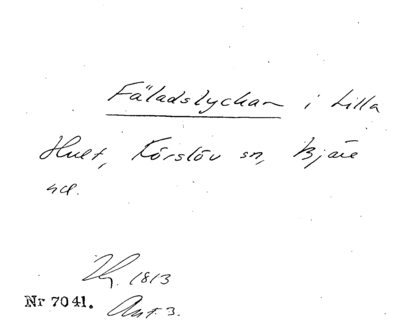 Fäladslyckan i Lilla
Hult, Förslöv sn, Bjäre
hd.
Lj. 1813
Nr 7041. Akt. 3.